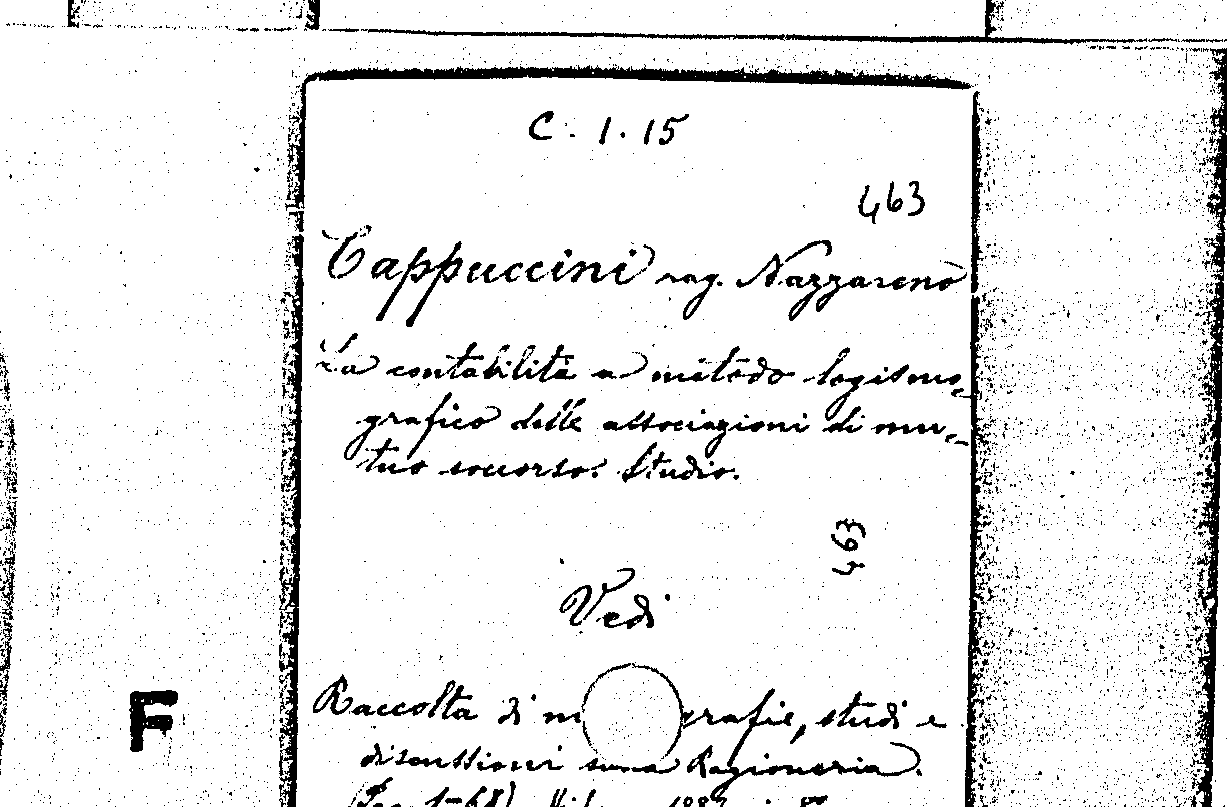 C. 1. 15
463
Cappuccini rag. Nazzareno
La contabilità a metodo logismo-
grafico delle associazioni di mu-
tuo soccorso. Studio.
463
Vedi
Raccolta di m grafie, studi e
discussioni Ragioneria.
F